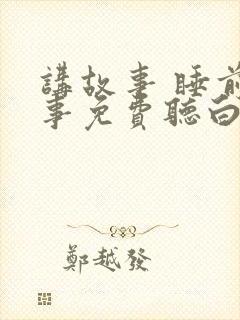 講故事 睡前
事免費聽白
鄭越發